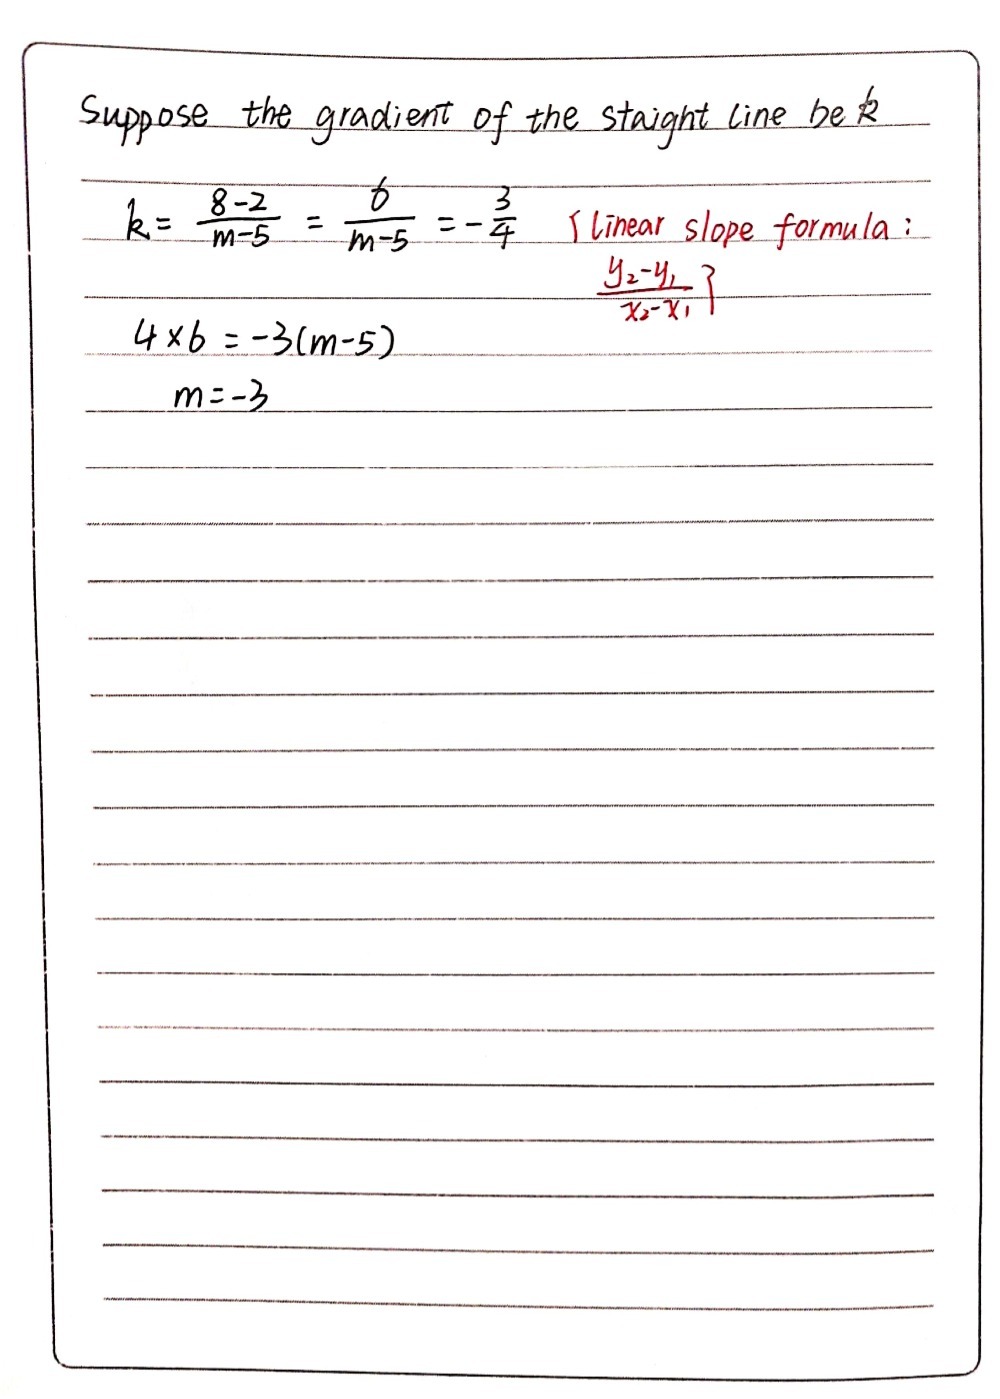 Suppose the gradient of the staight line be k
k = \frac{8-2}{m-5} = \frac{6}{m-5} = -\frac{3}{4} {linear slope formula:
\frac{y₂-y₁}{x₂-x₁}}
4×6 = -3(m-5)
m = -3